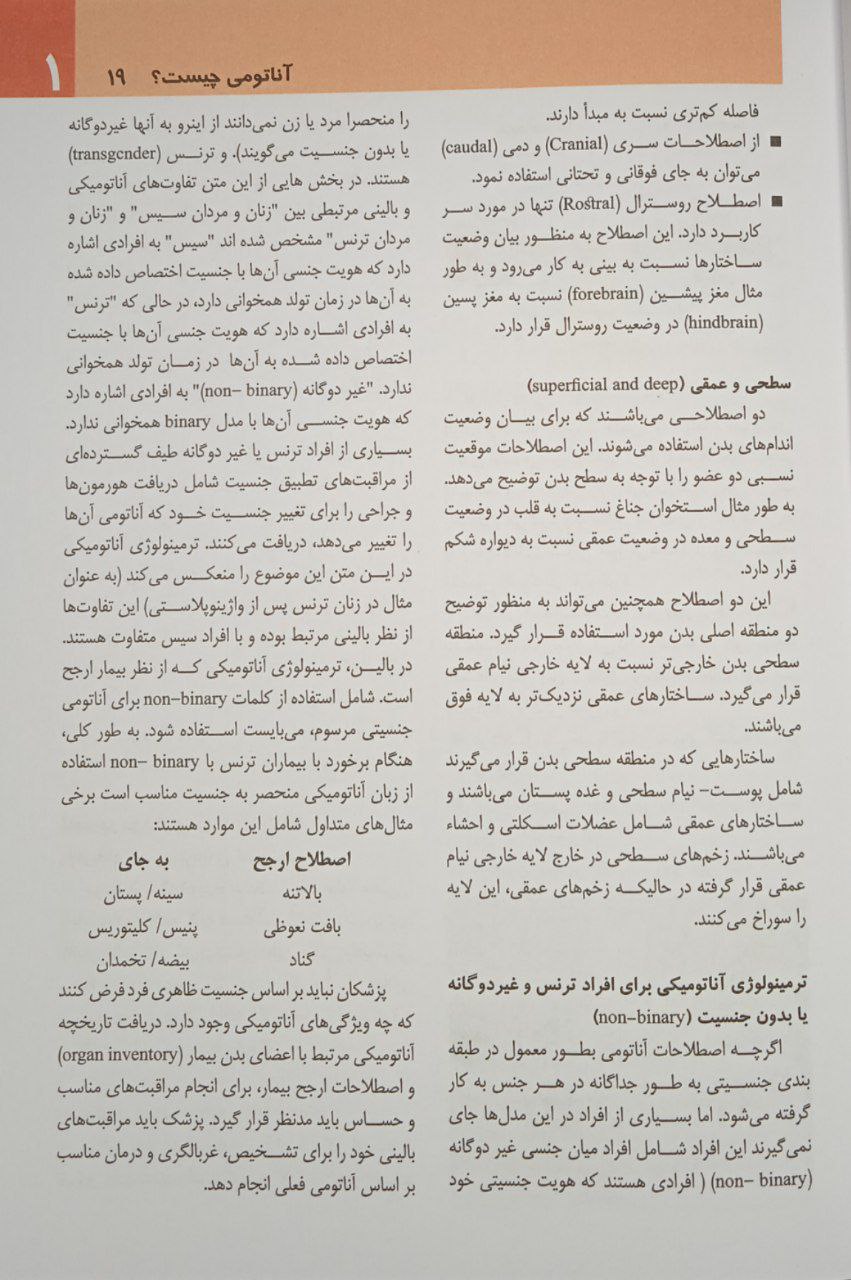 آناتومی چیست؟ ۱۹
۱
فاصله کم‌تری نسبت به مبدأ دارند.
■ از اصطلاحات سری (Cranial) و دمی (caudal)
می‌توان به جای فوقانی و تحتانی استفاده نمود.
■ اصطلاح روسترال (Rostral) تنها در مورد سر
کاربرد دارد. این اصطلاح به منظور بیان وضعیت
ساختارها نسبت به بینی به کار می‌رود و به طور
مثال مغز پیشین (forebrain) نسبت به مغز پسین
(hindbrain) در وضعیت روسترال قرار دارد.
سطحی و عمقی (superficial and deep)
دو اصطلاحی می‌باشند که برای بیان وضعیت
اندام‌های بدن استفاده می‌شوند. این اصطلاحات موقعیت
نسبی دو عضو را با توجه به سطح بدن توضیح می‌دهد.
به طور مثال استخوان جناغ نسبت به قلب در وضعیت
سطحی و معده در وضعیت عمقی نسبت به دیواره شکم
قرار دارد.
این دو اصطلاح همچنین می‌تواند به منظور توضیح
دو منطقه اصلی بدن مورد استفاده قرار گیرد. منطقه
سطحی بدن خارجی‌تر نسبت به لایه خارجی نیام عمقی
قرار می‌گیرد. ساختارهای عمقی نزدیک‌تر به لایه فوق
می‌باشند.
ساختارهایی که در منطقه سطحی بدن قرار می‌گیرند
شامل پوست- نیام سطحی و غده پستان می‌باشند و
ساختارهای عمقی شامل عضلات اسکلتی و احشاء
می‌باشند. زخم‌های سطحی در خارج لایه خارجی نیام
عمقی قرار گرفته در حالیکه زخم‌های عمقی، این لایه
را سوراخ می‌کنند.
ترمینولوژی آناتومیکی برای افراد ترنس و غیردوگانه
یا بدون جنسیت (non-binary)
اگرچه اصطلاحات آناتومی بطور معمول در طبقه
بندی جنسیتی به طور جداگانه در هر جنس به کار
گرفته می‌شود. اما بسیاری از افراد در این مدل‌ها جای
نمی‌گیرند این افراد شامل افراد میان جنسی غیر دوگانه
(non- binary) ( افرادی هستند که هویت جنسیتی خود
را منحصرا مرد یا زن نمی‌دانند از اینرو به آنها غیردوگانه
یا بدون جنسیت می‌گویند). و ترنس (transgender)
هستند. در بخش هایی از این متن تفاوت‌های آناتومیکی
و بالینی مرتبطی بین "زنان و مردان سیس" و "زنان و
مردان ترنس" مشخص شده اند "سیس" به افرادی اشاره
دارد که هویت جنسی آن‌ها با جنسیت اختصاص داده شده
به آن‌ها در زمان تولد همخوانی دارد، در حالی که "ترنس"
به افرادی اشاره دارد که هویت جنسی آن‌ها با جنسیت
اختصاص داده شده به آن‌ها در زمان تولد همخوانی
ندارد. "غیر دوگانه (non- binary)" به افرادی اشاره دارد
که هویت جنسی آن‌ها با مدل binary همخوانی ندارد.
بسیاری از افراد ترنس یا غیر دوگانه طیف گسترده‌ای
از مراقبت‌های تطبیق جنسیت شامل دریافت هورمون‌ها
و جراحی را برای تغییر جنسیت خود که آناتومی آن‌ها
را تغییر می‌دهد، دریافت می‌کنند. ترمینولوژی آناتومیکی
در این متن این موضوع را منعکس می‌کند (به عنوان
مثال در زنان ترنس پس از واژینوپلاستی) این تفاوت‌ها
از نظر بالینی مرتبط بوده و با افراد سیس متفاوت هستند.
در بالین، ترمینولوژی آناتومیکی که از نظر بیمار ارجح
است. شامل استفاده از کلمات non-binary برای آناتومی
جنسیتی مرسوم، می‌بایست استفاده شود. به طور کلی،
هنگام برخورد با بیماران ترنس با non- binary استفاده
از زبان آناتومیکی منحصر به جنسیت مناسب است برخی
مثال‌های متداول شامل این موارد هستند:
اصطلاح ارجح به جای
بالاتنه سینه/ پستان
بافت نعوظی پنیس/ کلیتوریس
گناد بیضه/ تخمدان
پزشکان نباید بر اساس جنسیت ظاهری فرد فرض کنند
که چه ویژگی‌های آناتومیکی وجود دارد. دریافت تاریخچه
آناتومیکی مرتبط با اعضای بدن بیمار (organ inventory)
و اصطلاحات ارجح بیمار، برای انجام مراقبت‌های مناسب
و حساس باید مدنظر قرار گیرد. پزشک باید مراقبت‌های
بالینی خود را برای تشخیص، غربالگری و درمان مناسب
بر اساس آناتومی فعلی انجام دهد.